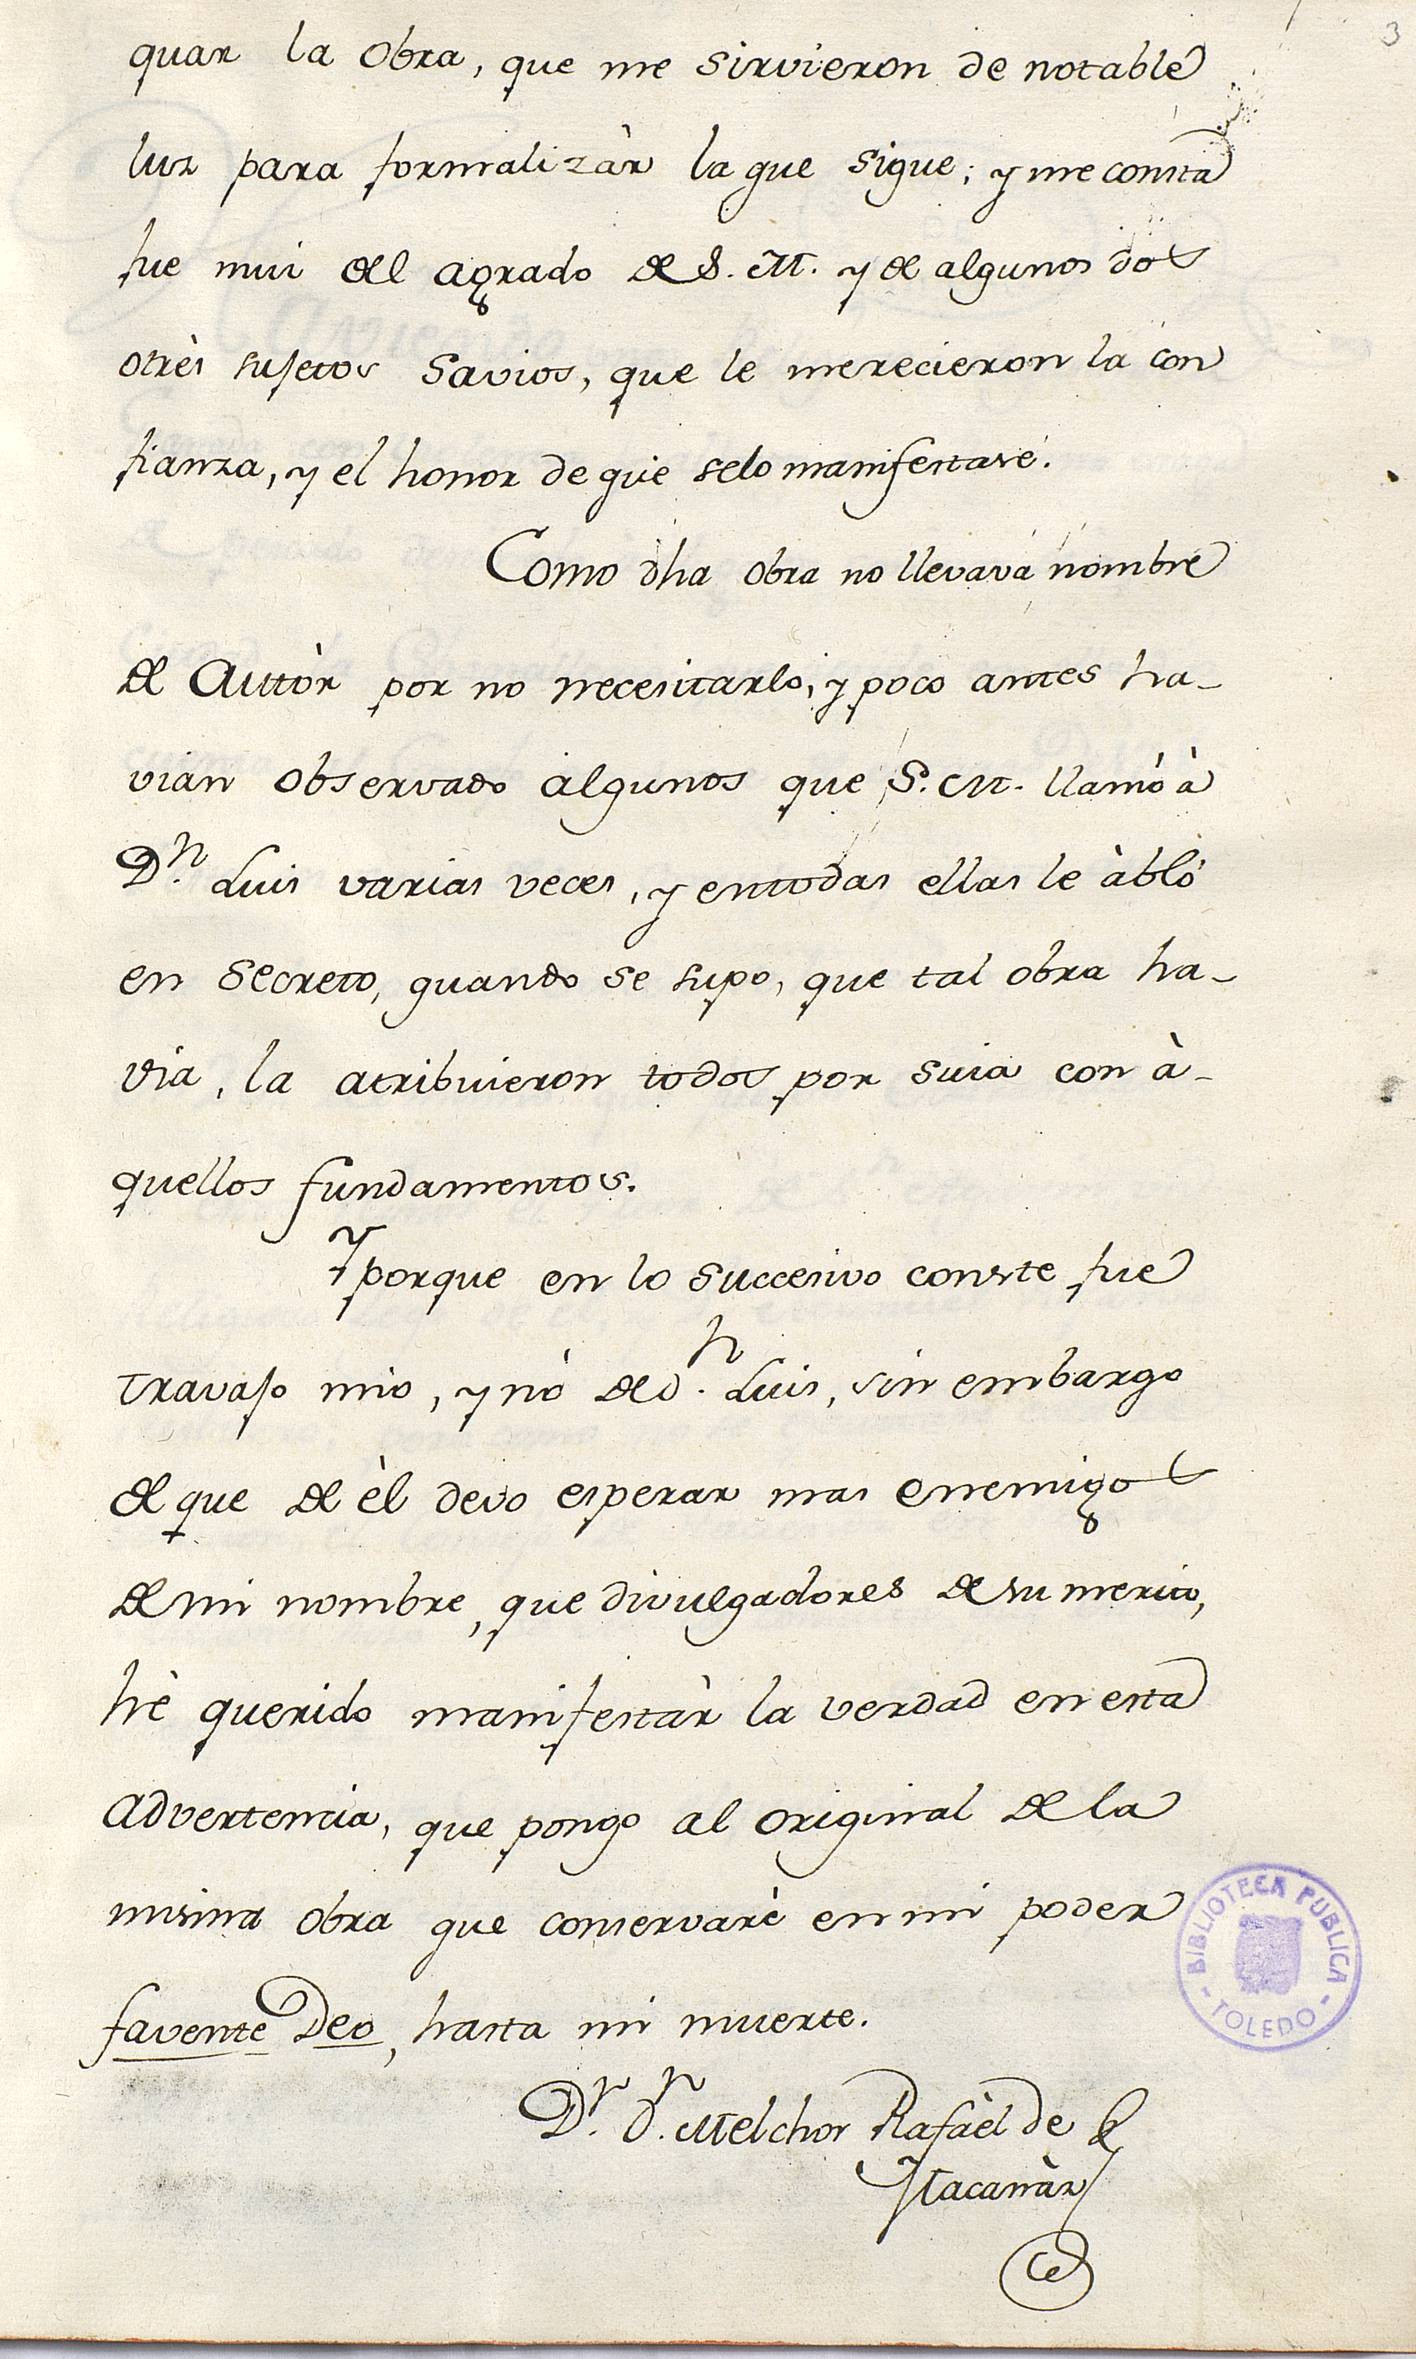 3
quar la obra, que me sirvieron de notable
luz para formalizàr la que sigue; y me consta
fue mui del agrado de S. M. y de algunos dos
otrès sujetos savios, que le merecieron la con
fianza, y el honor de que selo manifestase.
Como dha obra no llevava nombre
de Auttòr por no necesitarlo, y poco antes ha-
vian observado algunos que S. M. llamó à
Dn. Luis varias veces, y entodas ellas le àbló
en secreto, quando se supo, que tal obra ha-
via, la atribuieron todos por suia con à-
quellos fundamentos.
Y porque en lo successivo conste fue
travajo mio, y nó de dn. Luis, sin embargo
de que de èl devo esperar mas enemigos
de mi nombre, que divulgadores de su merito,
hè querido manifestàr la verdad en esta
advertencia, que pongo al original de la
misma obra que conservarè en mi poder
favente Deo, hasta mi muerte.
Dr. dn. Melchor Rafaèl de
Macanàz
BIBLIOTECA PUBLICA
- TOLEDO -